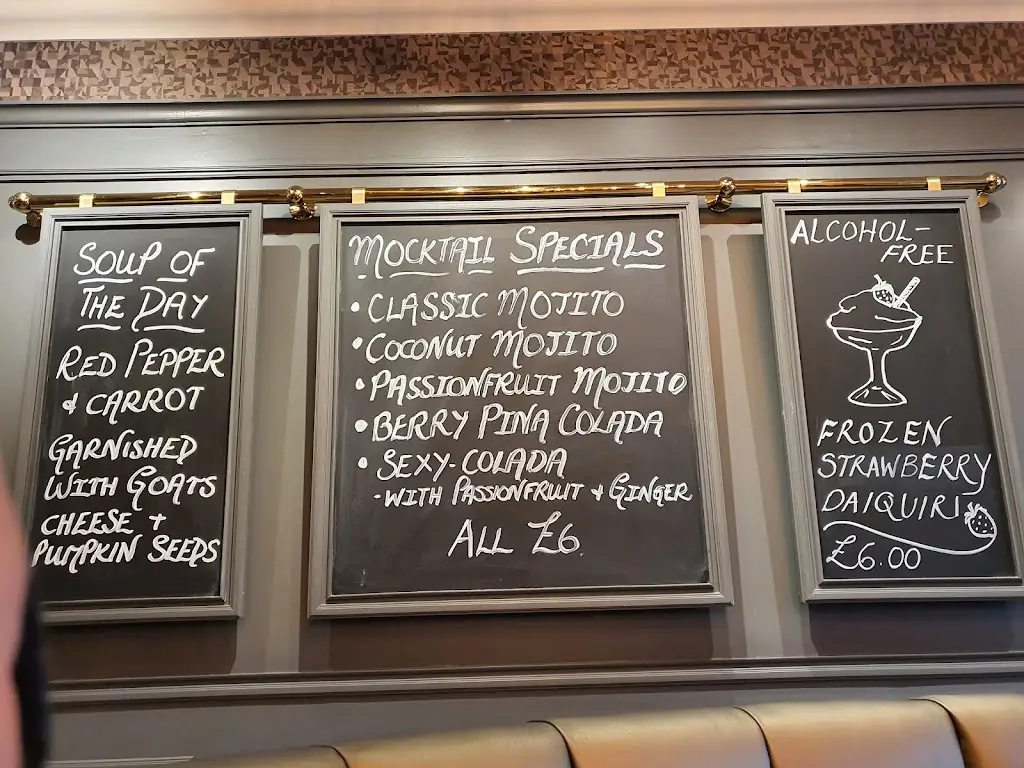 SOUP OF
THE DAY
RED PEPPER
& CARROT
GARNISHED
WITH GOATS
CHEESE +
PUMPKIN SEEDS
MOCKTAIL SPECIALS
• CLASSIC MOJITO
• COCONUT MOJITO
• PASSIONFRUIT MOJITO
• BERRY PINA COLADA
• SEXY-COLADA
- WITH PASSIONFRUIT & GINGER
ALL £6.
ALCOHOL-
FREE
FROZEN
STRAWBERRY
DAIQUIRI
£6.00